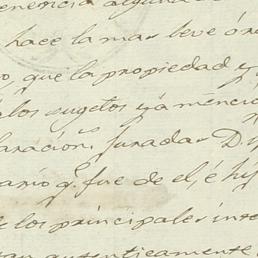 hace la mas leve ó
que la propiedad y
los sugetos ya menci
aración Jurada D.
ario q.e fue de el, é hi
los principales inte
autenticamente